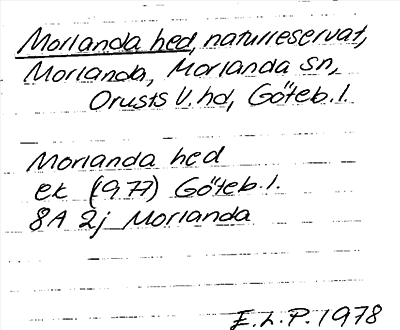 Morlanda hed, naturreservat,
Morlanda, Morlanda sn,
Orusts V. hd, Göteb. l.
Morlanda hed
ek (1977) Göteb. l.
8A 2j Morlanda
E. L. P. 1978